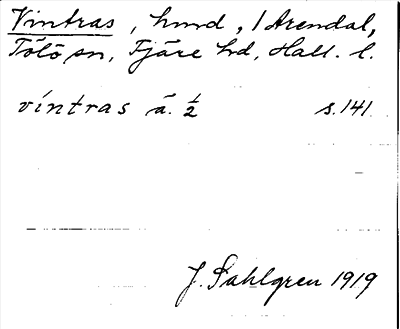 Vintras, hund, i Arendal,
Tölö sn, Fjäre hd, Hall. l.
víntras ā. ½ s. 141.
J. Sahlgren 1919